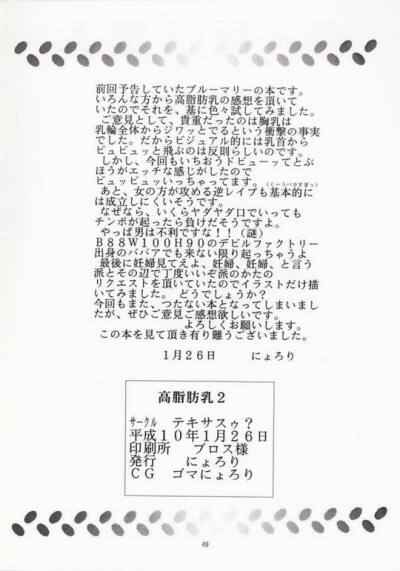 前回予告していたブルーマリーの本です。
いろんな方から高脂肪乳の感想を頂いて
いたのでそれを、基に色々試してみました。
ご意見として、貴重だったのは胸乳は
乳輪全体からジワッとでるという衝撃の事実
でした。だからビジュアル的には乳首から
ピュピュッと飛ぶのは反則らしいのです。
しかし、今回もいちおうドピューッてとぶ
ほうがエッチな感じがしたので
ピュッピュッいっちゃってます。
あと、女の方が攻める逆レイプも基本的に
は成立しにくいそうです。
なぜなら、いくらヤダヤダ口でいっても
チンポが起ったら負けだそうですよ。
やっぱ男は不利ですな！！（謎）
B88W100H90のデビルファクトリー
出身のババアでも来ない限り起っちゃうよ
最後に妊婦見てえよ、妊婦、妊婦、と言う
派とその辺で丁度いいぞ派のかたの
リクエストを頂いていたのでイラストだけ描
いてみました。 どうでしょうか？
今回もまた、つたない本となってしまいまし
たが、ぜひご意見ご感想欲しいです。
よろしくお願いします。
この本を見て頂き有り難うございました。
1月26日　　にょろり
高脂肪乳2
ｻｰｸﾙ　テキサスゥ？
平成10年1月26日
印刷所　ブロス様
発行　にょろり
CG　ゴマにょろり
49